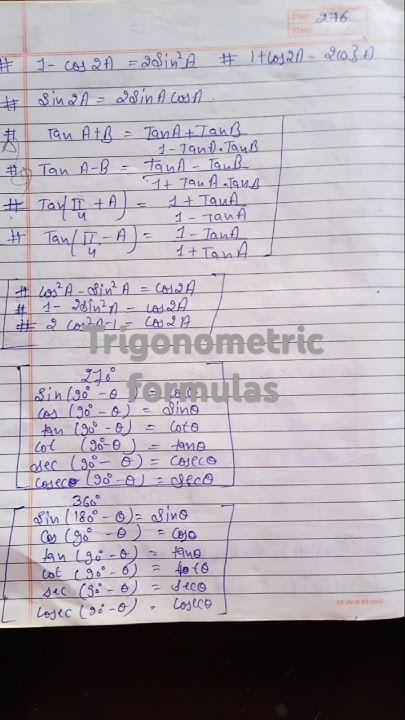 276
# 1 - cos2A = 2Sin²A # 1+cos2A = 2cos²A
# Sin2A = 2SinA cosA.
# Tan A+B = TanA + TanB / 1 - TanA.TanB
# Tan A-B = TanA - TanB / 1 + TanA.TanB
# Tan(π/4 + A) = 1 + TanA / 1 - TanA
# Tan(π/4 - A) = 1 - TanA / 1 + TanA
# cos²A - Sin²A = cos2A
# 1 - 2Sin²A = cos2A
# 2 cos²A-1 = cos2A
Trigonometric
formulas
270°
Sin(90° - θ) =
cos (90° - θ) = Sinθ
tan (90° - θ) = cotθ
cot (90° - θ) = tanθ
sec (90° - θ) = cosecθ
cosecθ (90° - θ) = secθ
360°
Sin(180° - θ) = Sinθ
cos (90° - θ) = cosθ
tan (90° - θ) = tanθ
cot (90° - θ) = cotθ
sec (90° - θ) = secθ
cosec (90° - θ) = cosecθ